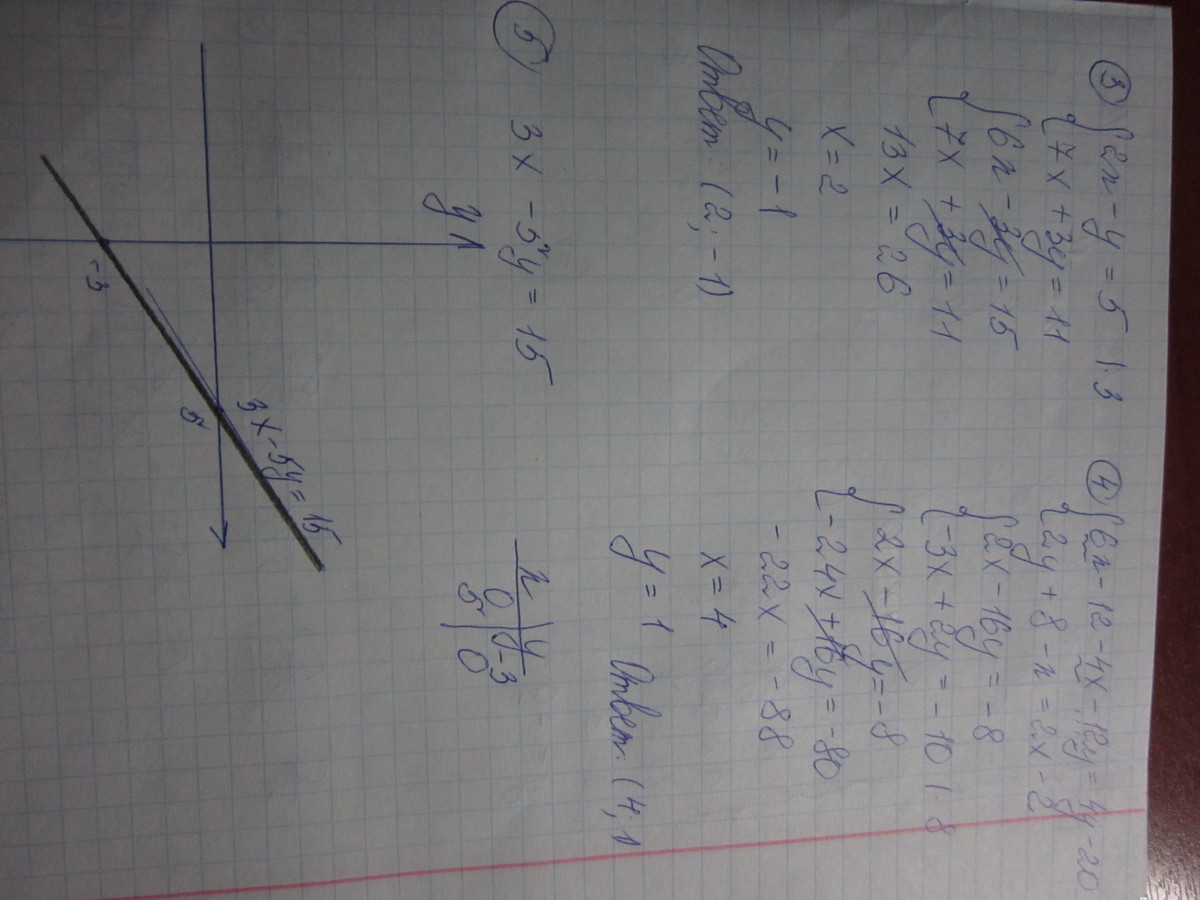 ③ {2x - y = 5 | · 3
{7x + 3y = 11
{6x - 3y = 15
{7x + 3y = 11
13x = 26
x = 2
y = -1
Ответ: (2; -1)
④ {6x - 12 - 4x - 12y = 4y - 20
{2y + 8 - x = 2x - 2
{2x - 16y = -8
{-3x + 2y = -10 | · 8
{2x - 16y = -8
{-24x + 16y = -80
-22x = -88
x = 4
y = 1 Ответ: (4, 1
⑤ 3x - 5y = 15
y
3x - 5y = 15
-3
5
x | y
0 | -3
5 | 0